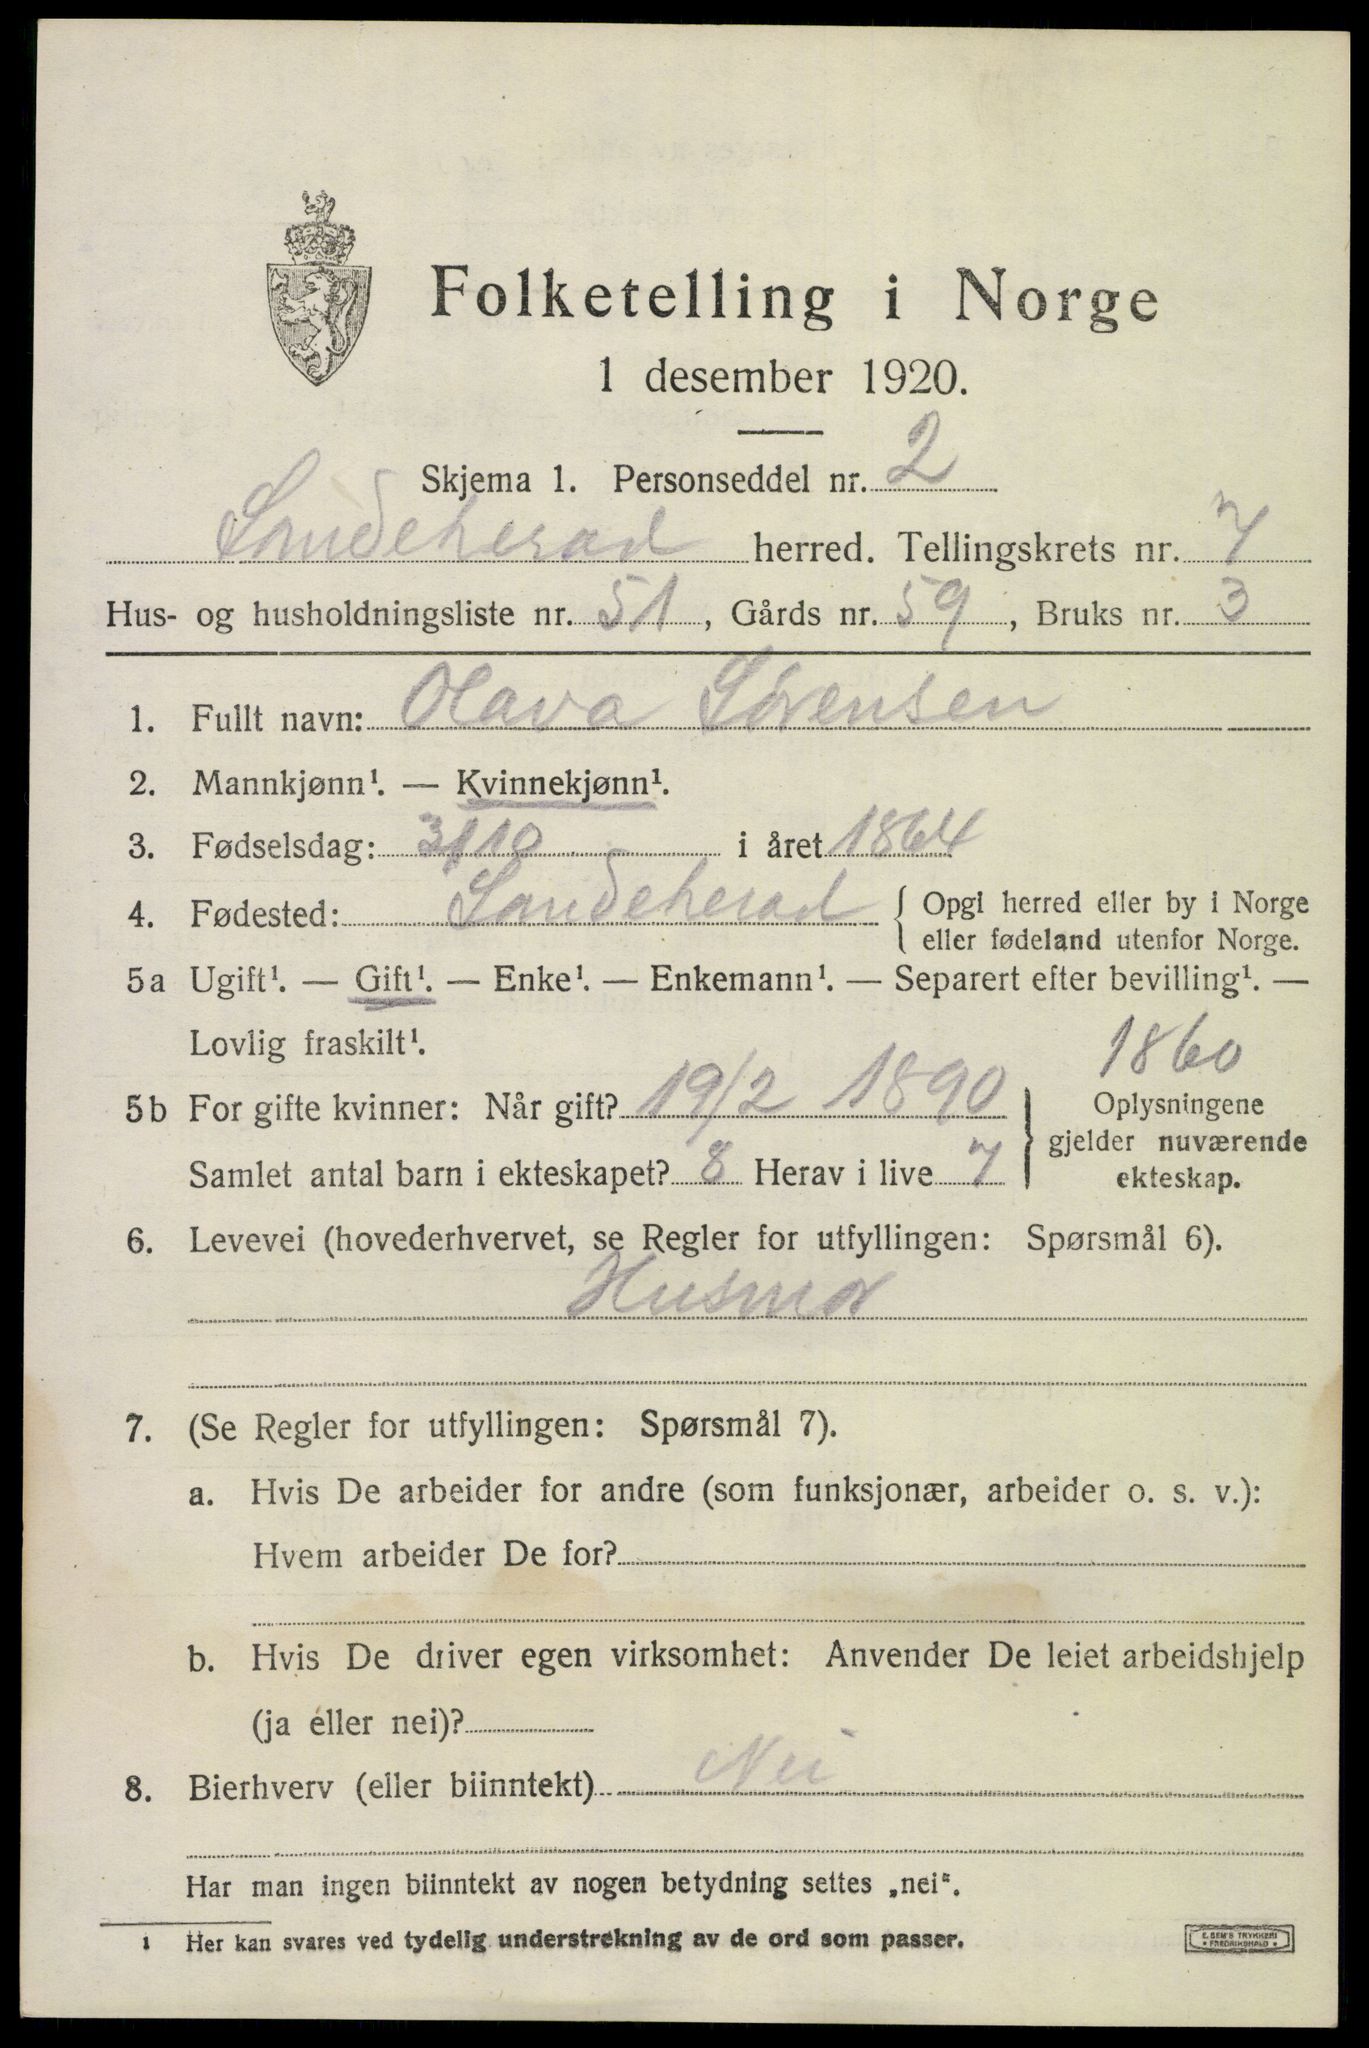 Folketelling i Norge
1 desember 1920.
Skjema 1. Personseddel nr. 2
Sandeherad herred. Tellingskrets nr. 7
Hus- og husholdningsliste nr. 51, Gårds nr. 59, Bruks nr. 3
1. Fullt navn: Olava Sørensen
2. Mannkjønn¹. — Kvinnekjønn¹.
3. Fødselsdag: 31/10 i året 1864
4. Fødested: Sandeherad { Opgi herred eller by i Norge
eller fødeland utenfor Norge.
5a Ugift¹. — Gift¹. — Enke¹. — Enkemann¹. — Separert efter bevilling¹. —
Lovlig fraskilt¹.
1860
5b For gifte kvinner: Når gift? 19/2 1890
Samlet antal barn i ekteskapet? 8 Herav i live 7
} Oplysningene
gjelder nuværende
ekteskap.
6. Levevei (hovederhvervet, se Regler for utfyllingen: Spørsmål 6).
Husmor
7. (Se Regler for utfyllingen: Spørsmål 7).
a. Hvis De arbeider for andre (som funksjonær, arbeider o. s. v.):
Hvem arbeider De for?
b. Hvis De driver egen virksomhet: Anvender De leiet arbeidshjelp
(ja eller nei)?
8. Bierhverv (eller biinntekt) Nei
Har man ingen biinntekt av nogen betydning settes „nei".
1 Her kan svares ved tydelig understrekning av de ord som passer.
E. SEM'S TRYKKERI
• FREDRIKSHALD •